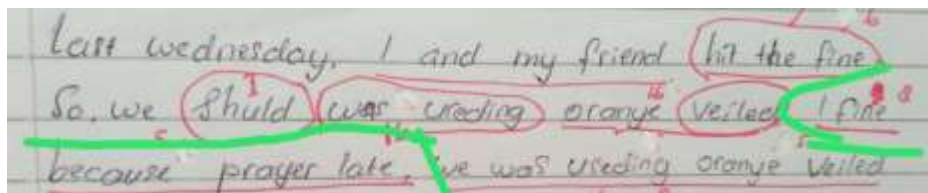 Last wednesday, I and my friend hit the fine
So, we Shuld was useding orange veiled I fine
because prayer late, we was useding orange veiled